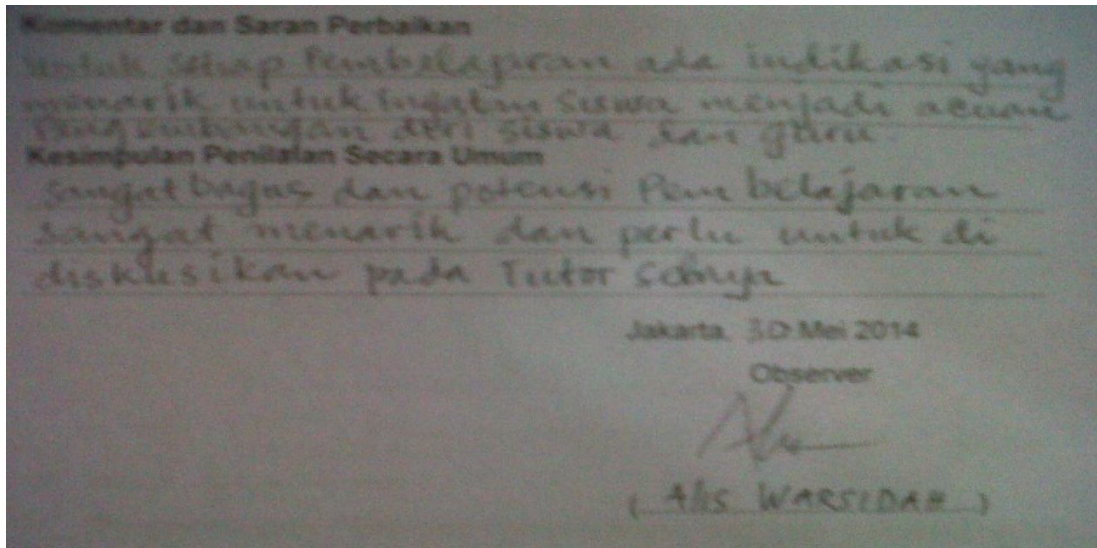 Komentar dan Saran Perbaikan
untuk setiap Pembelajaran ada indikasi yang
menarik untuk ingatan siswa menjadi acuan
Pengembangan dari siswa dan guru.
Kesimpulan Penilaian Secara Umum
Sangat bagus dan potensi Pembelajaran
sangat menarik dan perlu untuk di
diskusikan pada Tutor
Jakarta, 30 Mei 2014
Observer
( Alis WARSIDAH )